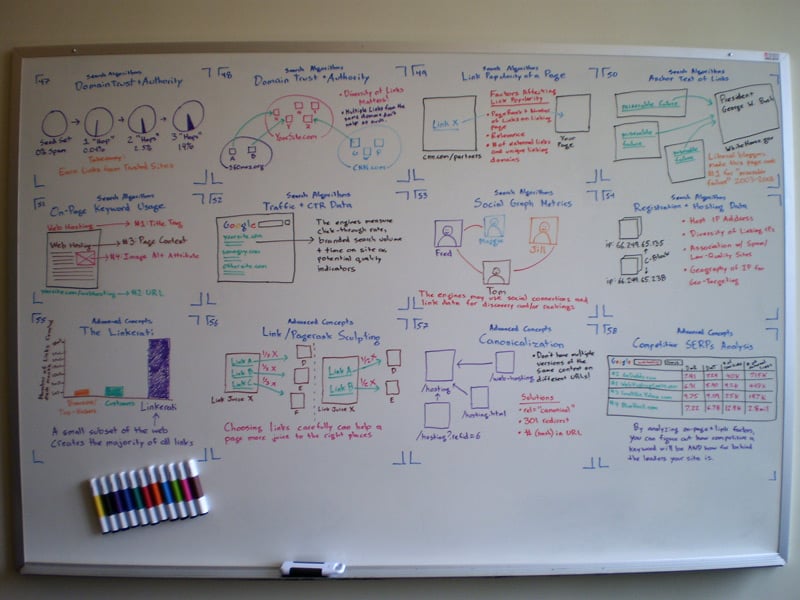 47
Search Algorithms
Domain Trust + Authority
Seed Set
0% Spam
1 "Hop"
2 "Hops"
3 "Hops"
14%
Takeaway:
Earn Links from Trusted Sites
48
Search Algorithms
Domain Trust + Authority
• Diversity of Links
Matters!
• Multiple Links from the
same domain don't
YourSite.com
A
B
CNN.com
49
Search Algorithms
Link Popularity of a Page
Link X
cnn.com/partners
Factors Affecting
Link Popularity
of Links on linking
page
• Relevance
• # of external links
and unique linking
domains
Your
Page
50
Search Algorithms
Anchor Text of Links
miserable failure
miserable failure
miserable failure
President
George W. Bush
WhiteHouse.gov
Liberal bloggers
made this page rank
#1 for "miserable
failure" 2003-2008
51
Search Algorithms
On-Page Keyword Usage
Web Hosting
#1: Title Tag
Web Hosting
#3: Page Content
#4: Image Alt Attribute
yoursite.com/webhosting
#2 URL
52
Search Algorithms
Traffic + CTR Data
Google
yoursite.com
othersite.com
The engines measure
click-through rate,
branded search volume
+ time on site as
potential quality
indicators
53
Search Algorithms
Social Graph Metrics
Fred
Margie
Jill
Tom
The engines may use social connections and
link data for discovery and/or rankings
54
Search Algorithms
Registration + Hosting Data
ip: 66.249.65.135
C-Block
ip: 66.249.65.238
• Host IP Address
• Diversity of Linking IPs
• Association w/ Spam/
Low-Quality Sites
• Geography of IP for
Geo-Targeting
55
Advanced Concepts
The Linkerati
Customers
Linkerati
A small subset of the web
creates the majority of all links
56
Advanced Concepts
Link/Pagerank Sculpting
Link A
Link B
Link C
1/3 X
1/3 X
1/3 X
D
E
F
Link Juice X
Link A
Link B
1/2 X
1/2 X
D
E
Link Juice X
Choosing links carefully can help a
page move juice to the right places
57
Advanced Concepts
Canonicalization
/web-hosting
/hosting
/hosting.html
/hosting?refid=6
• Don't have multiple
versions of the
same content on
different URLs!
Solutions
• rel="canonical"
• 301 redirect
• # (hash) in URL
58
Advanced Concepts
Competitive SERPs Analysis
Google
By analyzing on-page + link factors,
you can figure out how competitive a
keyword will be AND how far behind
the leaders your site is.